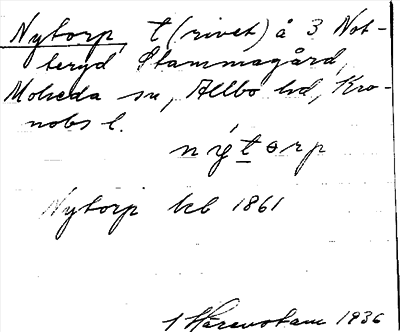 Nytorp, t (rivet) å 3 Not-
teryd Stammagård,
Moheda sn, Allbo hd, Kro-
nobs l.
nýtorp
Nytorp kb 1861
1936